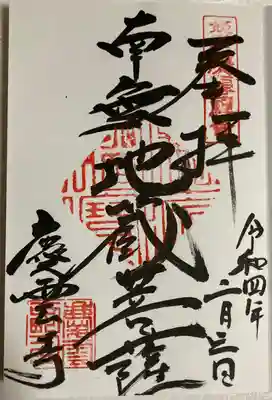 奉拝
令和四年二月三日
南無地蔵菩薩
慶雲寺